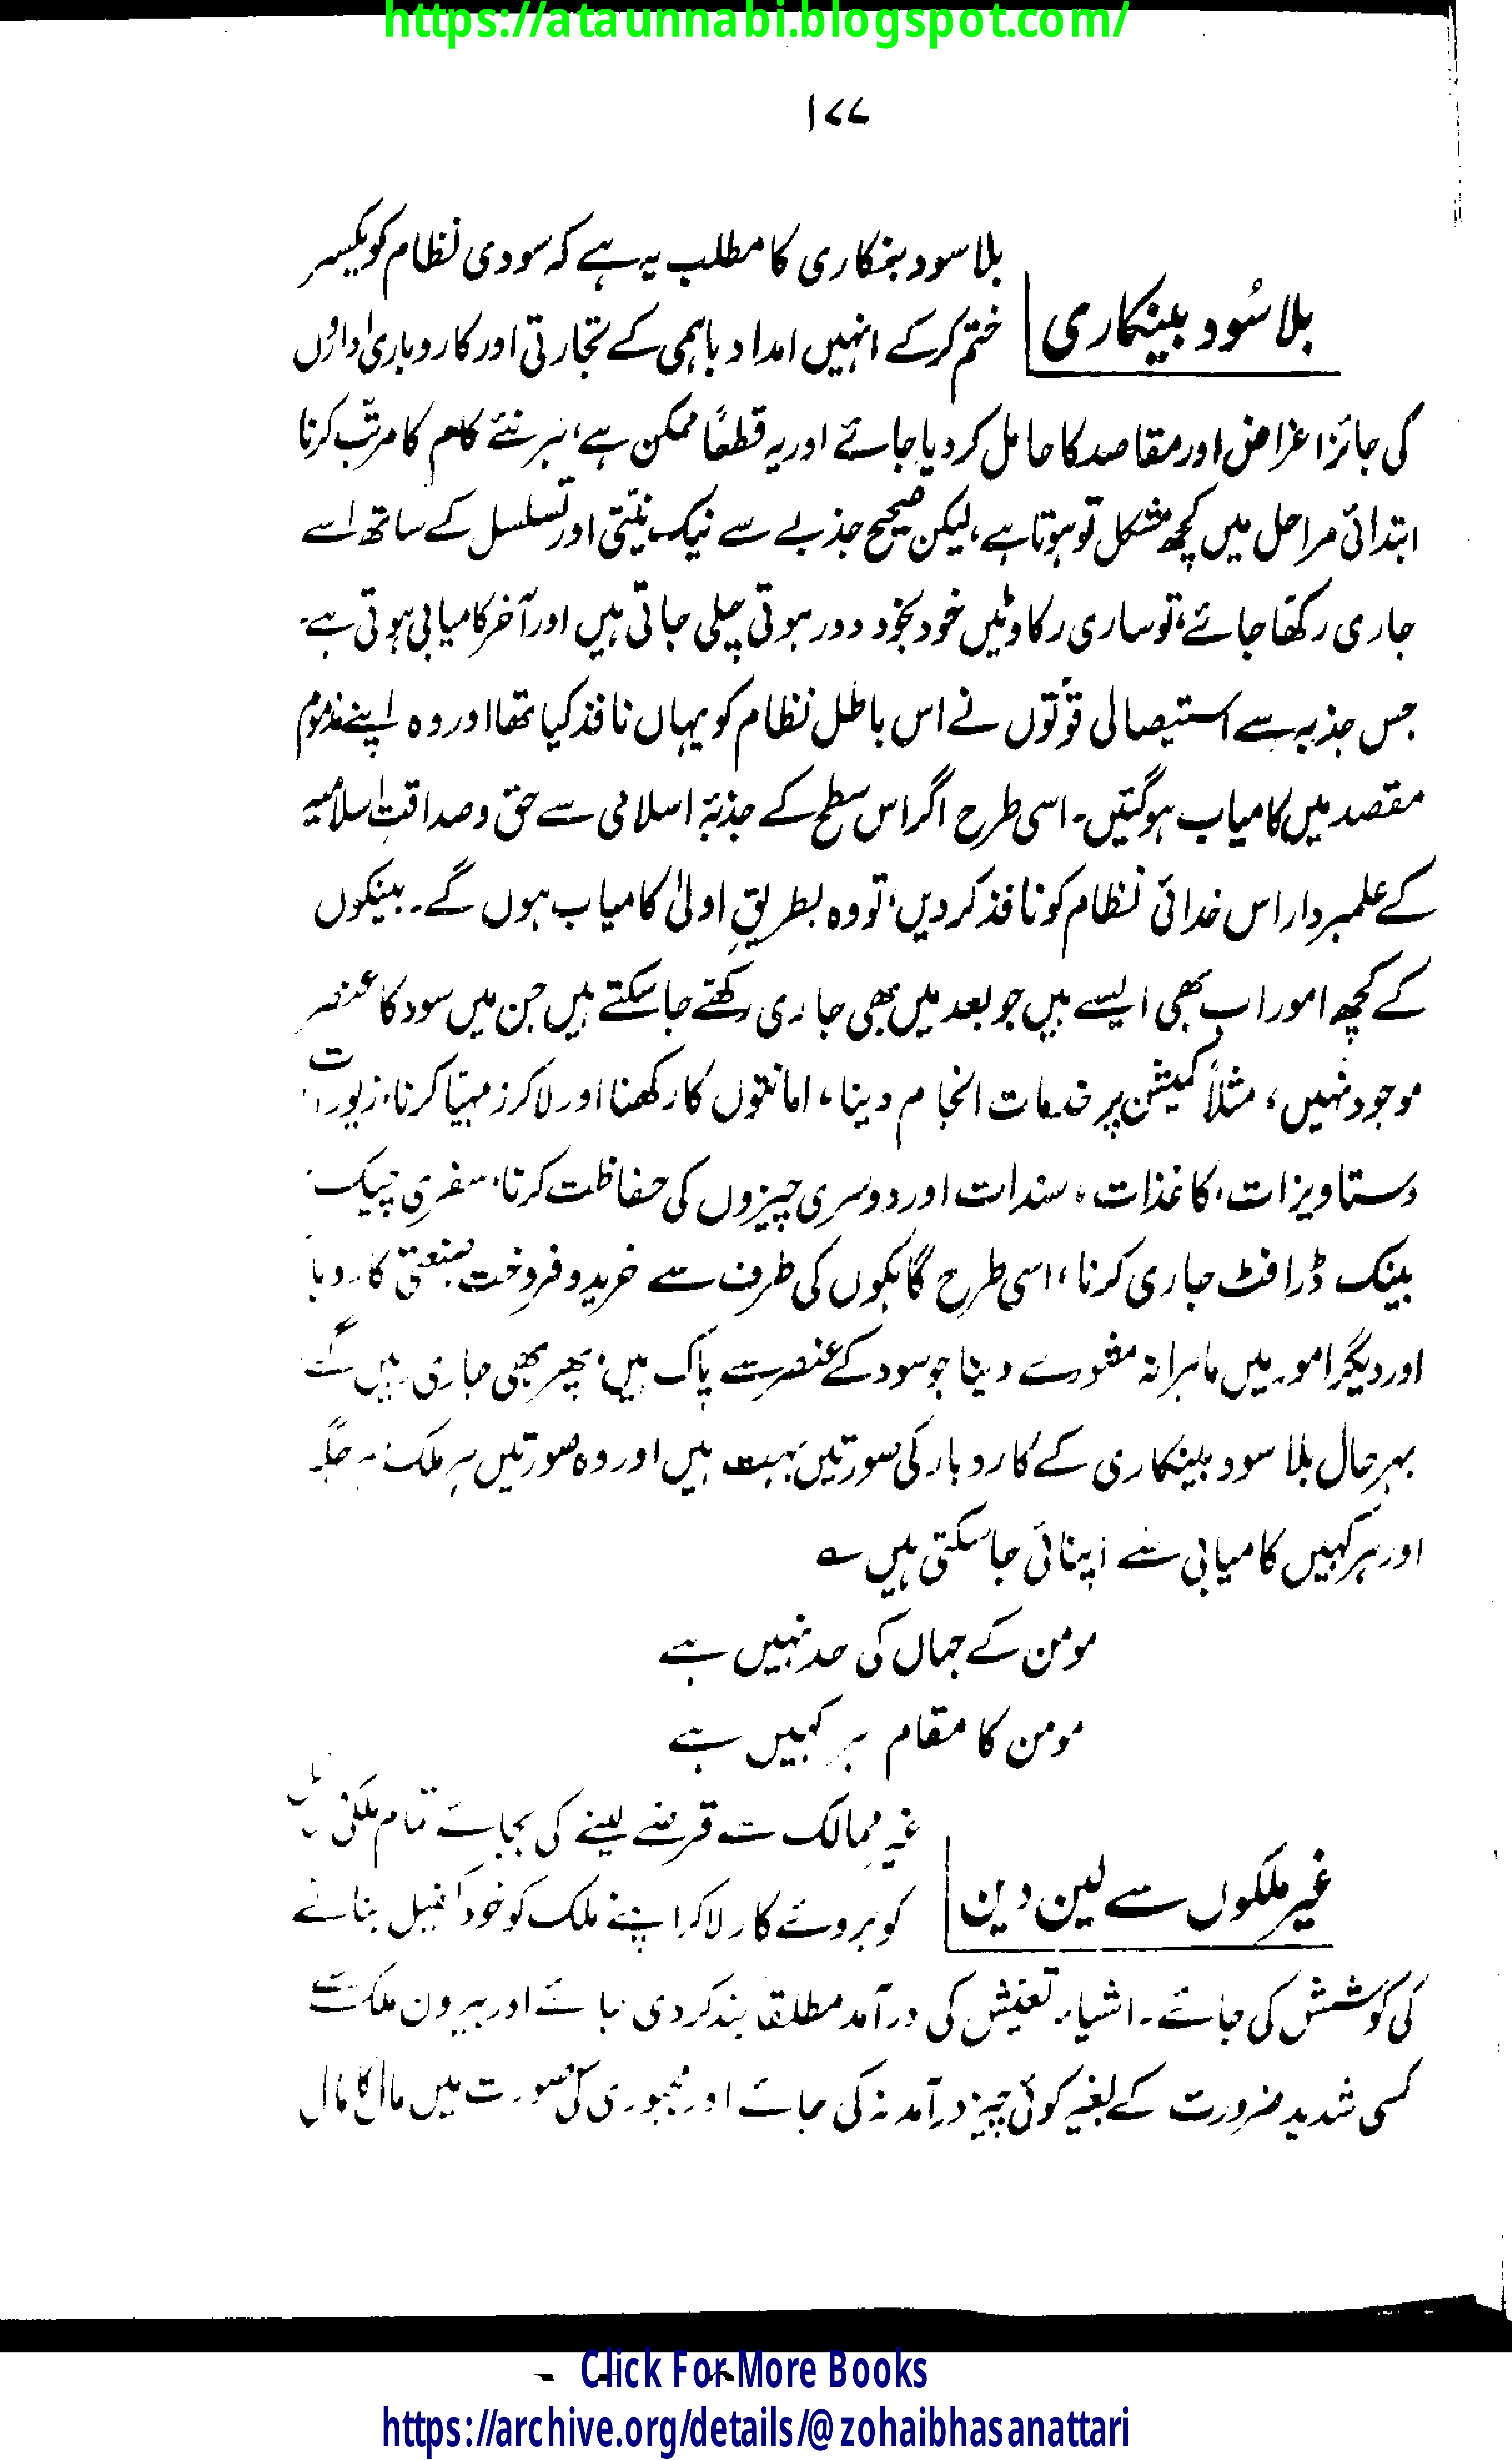 https://ataunnabi.blogspot.com/
۱۷۷
بلا سُود بینکاری
بلا سود بنکاری کا مطلب یہ ہے کہ سودی نظام کو یکسر
ختم کرکے انہیں امداد باہمی کے تجارتی اور کاروباری اداروں
کی جائز اغراض اور مقاصد کا حامل کر دیا جائے اور یہ قطعًا ممکن ہے، ہر نئے کام کا مرتّب کرنا
ابتدائی مراحل میں کچھ مشکل تو ہوتا ہے، لیکن صحیح جذبے سے نیک نیّتی اور تسلسل کے ساتھ اسے
جاری رکھا جائے، تو ساری رکاوٹیں خود بخود دور ہوتی چلی جاتی ہیں اور آخر کامیابی ہوتی ہے۔
جس جذبہ سے استیصالی قوّتوں نے اس باطل نظام کو یہاں نافذ کیا تھا اور وہ اپنے مذموم
مقصد میں کامیاب ہو گئیں۔ اسی طرح اگر اس سطح کے جذبۂ اسلامی سے حق و صداقتِ اسلامیہ
کے علمبردار اس خدائی نظام کو نافذ کر دیں، تو وہ بطریقِ اولیٰ کامیاب ہوں گے۔ بینکوں
کے کچھ امور اب بھی ایسے ہیں جو بعد میں بھی جاری رکھے جا سکتے ہیں جن میں سود کا عنصر
موجود نہیں، مثلاً کمیشن پر خدمات انجام دینا، امانتوں کا رکھنا اور لاکرز مہیّا کرنا، زیورات،
دستاویزات، کاغذات، سندات اور دوسری چیزوں کی حفاظت کرنا، سفری چیک،
بینک ڈرافٹ جاری کرنا، اسی طرح گاہکوں کی طرف سے خرید و فروخت، صنعتی کاروبا
اور دیگر امور میں ماہرانہ مشورے دینا جو سود کے عنصر سے پاک ہیں، پھر بھی جاری رہیں گے
بہرحال بلا سود بینکاری کے کاروبار کی صورتیں بہت ہیں اور وہ صورتیں ہر ملک، ہر جگہ
اور ہر کہیں کامیابی سے اپنائی جا سکتی ہیں ؎
مومن کے جہاں کی حد نہیں ہے
مومن کا مقام ہر کہیں ہے
غیر ملکوں سے لین دین
غیر ممالک سے قرضے لینے کی بجائے تمام ملکی
کو بروئے کار لا کر اپنے ملک کو خود کفیل بنانے
کی کوشش کی جائے۔ اشیاء تعیش کی درآمد مطلقًا بند کر دی جائے اور بیرون ملک سے
کسی شدید ضرورت کے بغیر کوئی چیز درآمد نہ کی جائے اور مجبوری کی صورت میں مال کا مال
Click For More Books
https://archive.org/details/@zohaibhasanattari